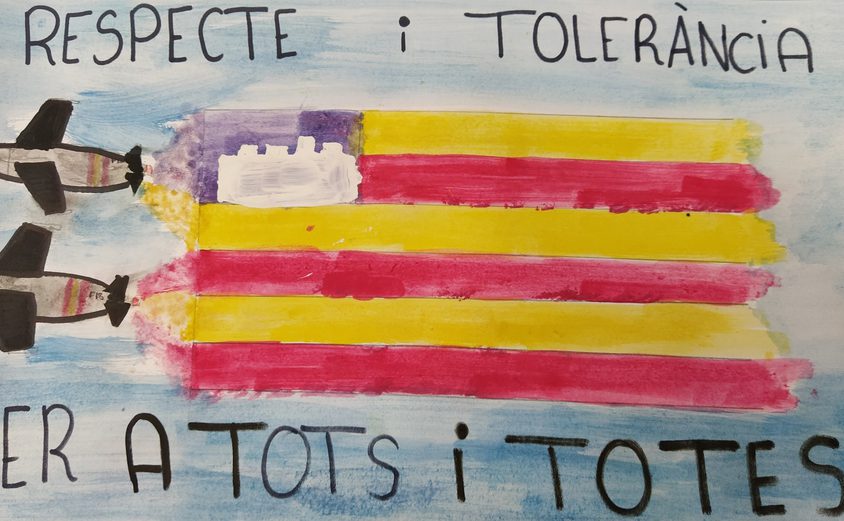 RESPECTE i TOLERÀNCiA
ER A TOTS i TOTES